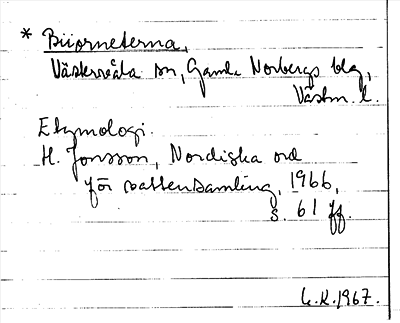 * Biiorneterna,
Västervåla sn, Gamla Norbergs blg,
Västm. l.
Etymologi.
H. Jonsson, Nordiska ord
för vattensamling, 1966,
s. 61 ff.
1967.